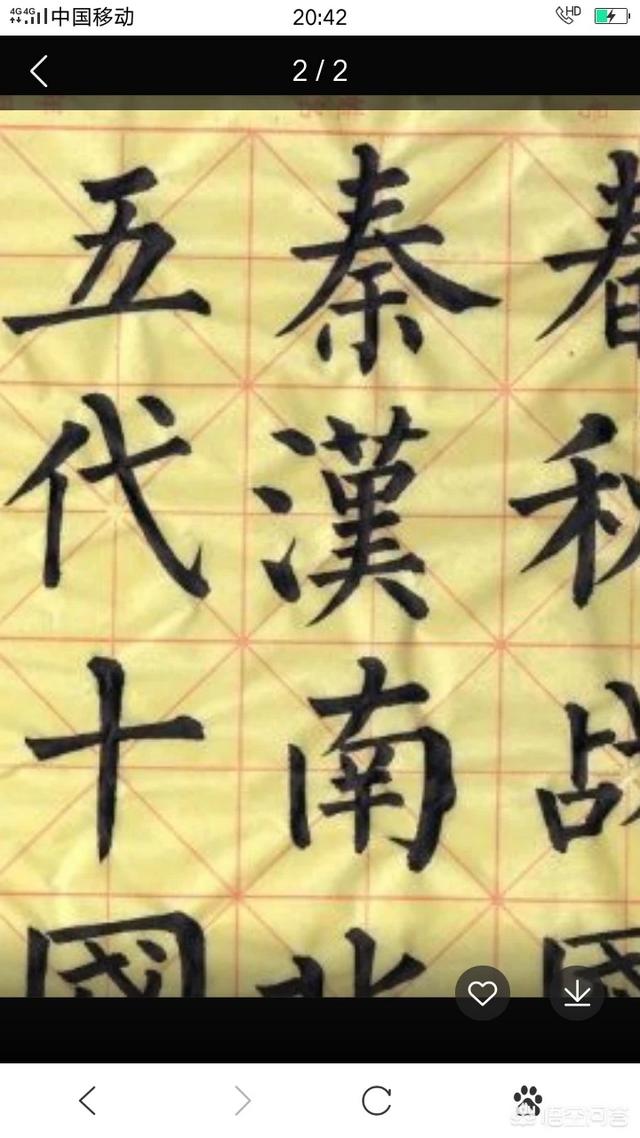 4G4G 中国移动 20:42 HD
2 / 2
春秋战國
秦漢南北
五代十國
悟空问答